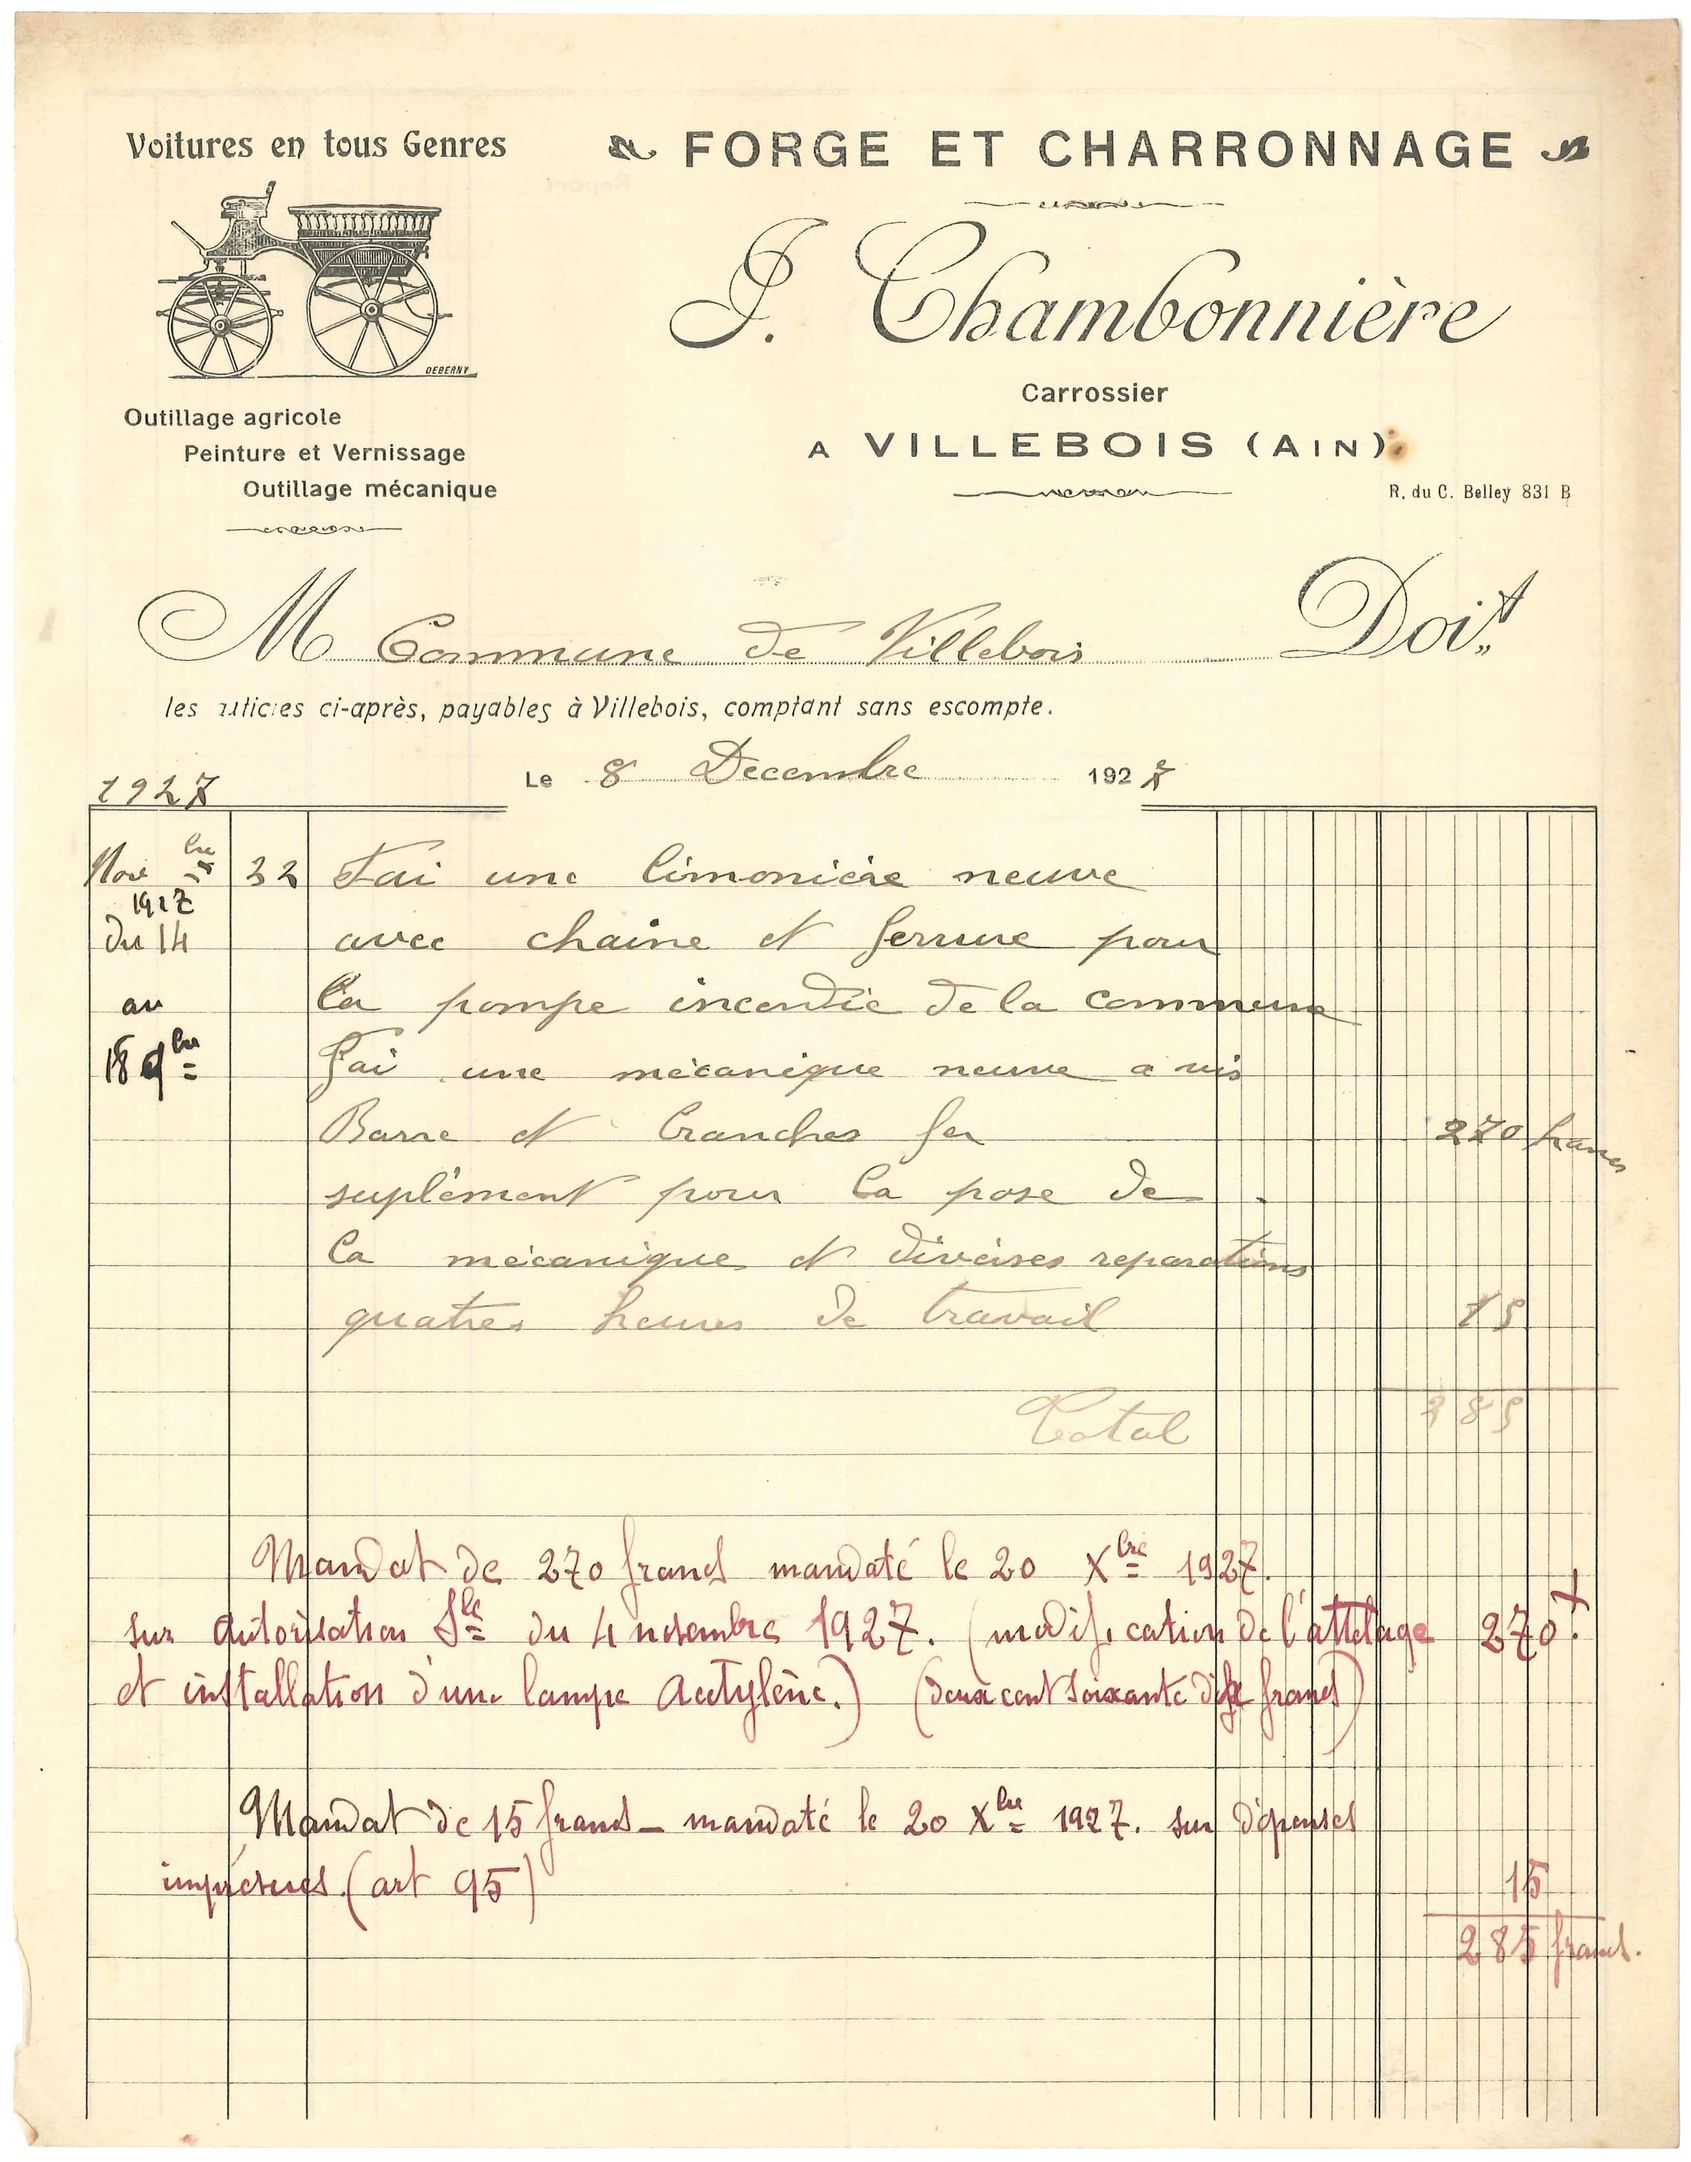 Voitures en tous Genres
FORGE ET CHARRONNAGE
J. Chambonnière
DEBERNY
Carrossier
Outillage agricole
A VILLEBOIS (AIN)
Peinture et Vernissage
Outillage mécanique
R. du C. Belley 831 B
M Commune de Villebois Doit
les articles ci-après, payables à Villebois, comptant sans escompte.
1927
Le 8 Decembre 1927
Nove bre 22 Fai une limonière neuve
1927
du 14 avec chaine et ferrure pour
au la pompe incendie de la commune
18 9bre fai une mécanique neuve a vis
Barre et branches fer 270 francs
suplément pour la pose de
la mécanique et diverses reparations
quatres heures de travail 15
Total 285
Mandat de 270 francs mandaté le 20 Xbre 1927.
sur autorisation Sle du 4 novembre 1927. (modification de l'attelage 270f.
et installation d'une lampe Acétylène.) (deux cent soixante dix francs)
Mandat de 15 francs - mandaté le 20 Xbre 1927. sur dépenses
imprévues. (art 95) 15
285 francs.